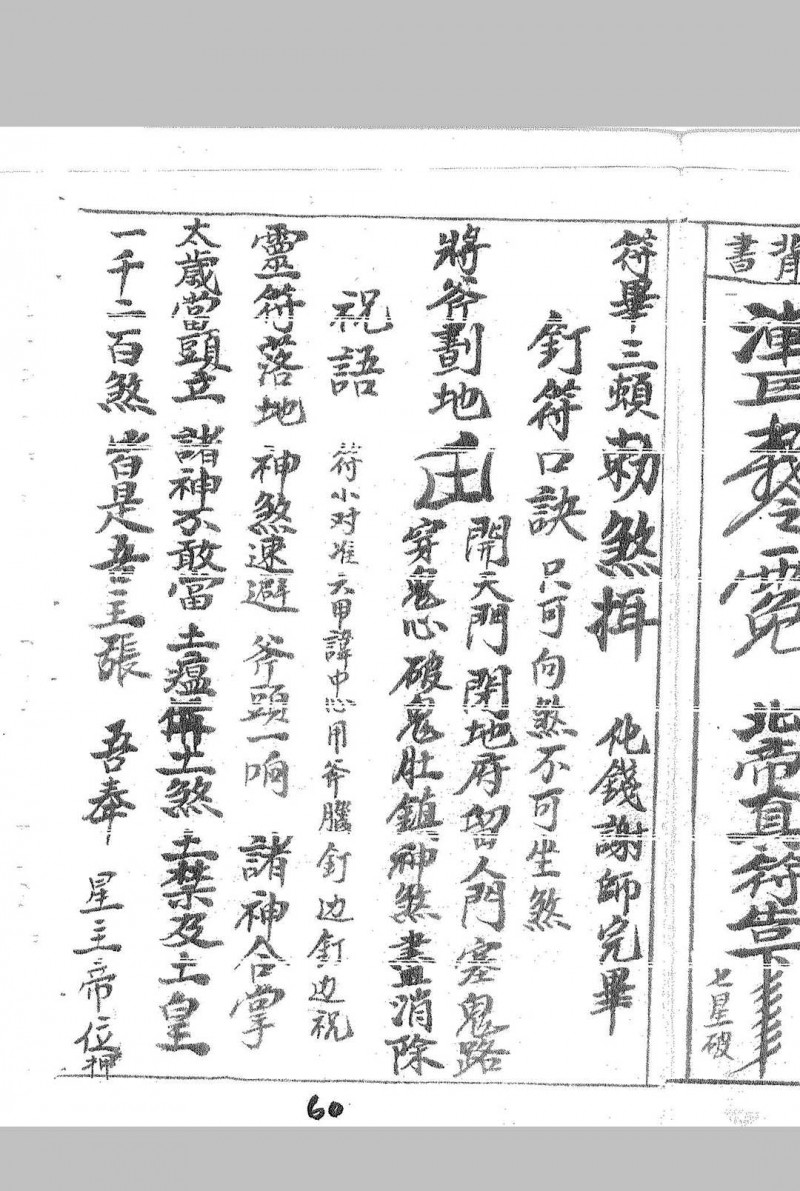 背書
北帝真符告下
七星破
符畢三頓勅煞揖 化錢謝師完畢
釘符口訣 只可向煞不可坐煞
將斧劃地 開天門閉地府留人門塞鬼路
穿鬼心破鬼肚鎮神煞盡消除
祝語 符小对准六甲諱中心用斧腦釘边釘边祝
靈符落地 神煞速避 斧頭一响 諸神合掌
太歲當頭立 諸神不敢當 土瘟 土煞 土禁及土皇
一千二百煞 皆是吾主張 吾奉 星主帝位押
60